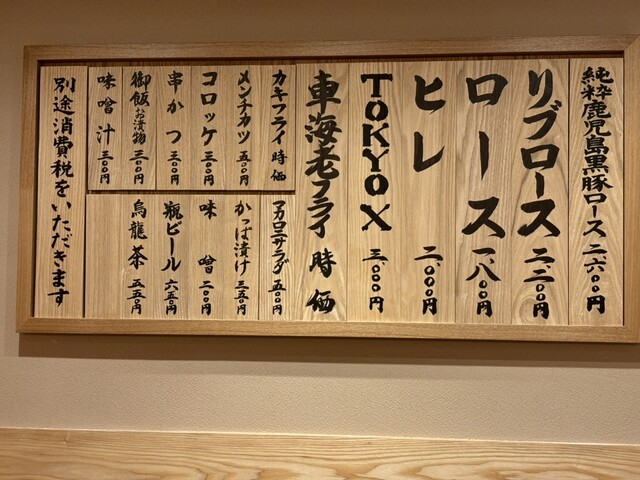 純粋鹿児島黒豚ロース 二、六〇〇円
リブロース 二、二〇〇円
ロース 一、八〇〇円
ヒレ 二、〇〇〇円
TOKYO X 三、〇〇〇円
車海老フライ 時価
カキフライ 時価
メンチカツ 五〇〇円
コロッケ 三〇〇円
串かつ 三〇〇円
御飯お漬物 三〇〇円
味噌汁 三〇〇円
マカロニサラダ 五〇〇円
かっぱ漬け 三五〇円
味噌 二〇〇円
瓶ビール 六五〇円
烏龍茶 五五〇円
別途消費税をいただきます